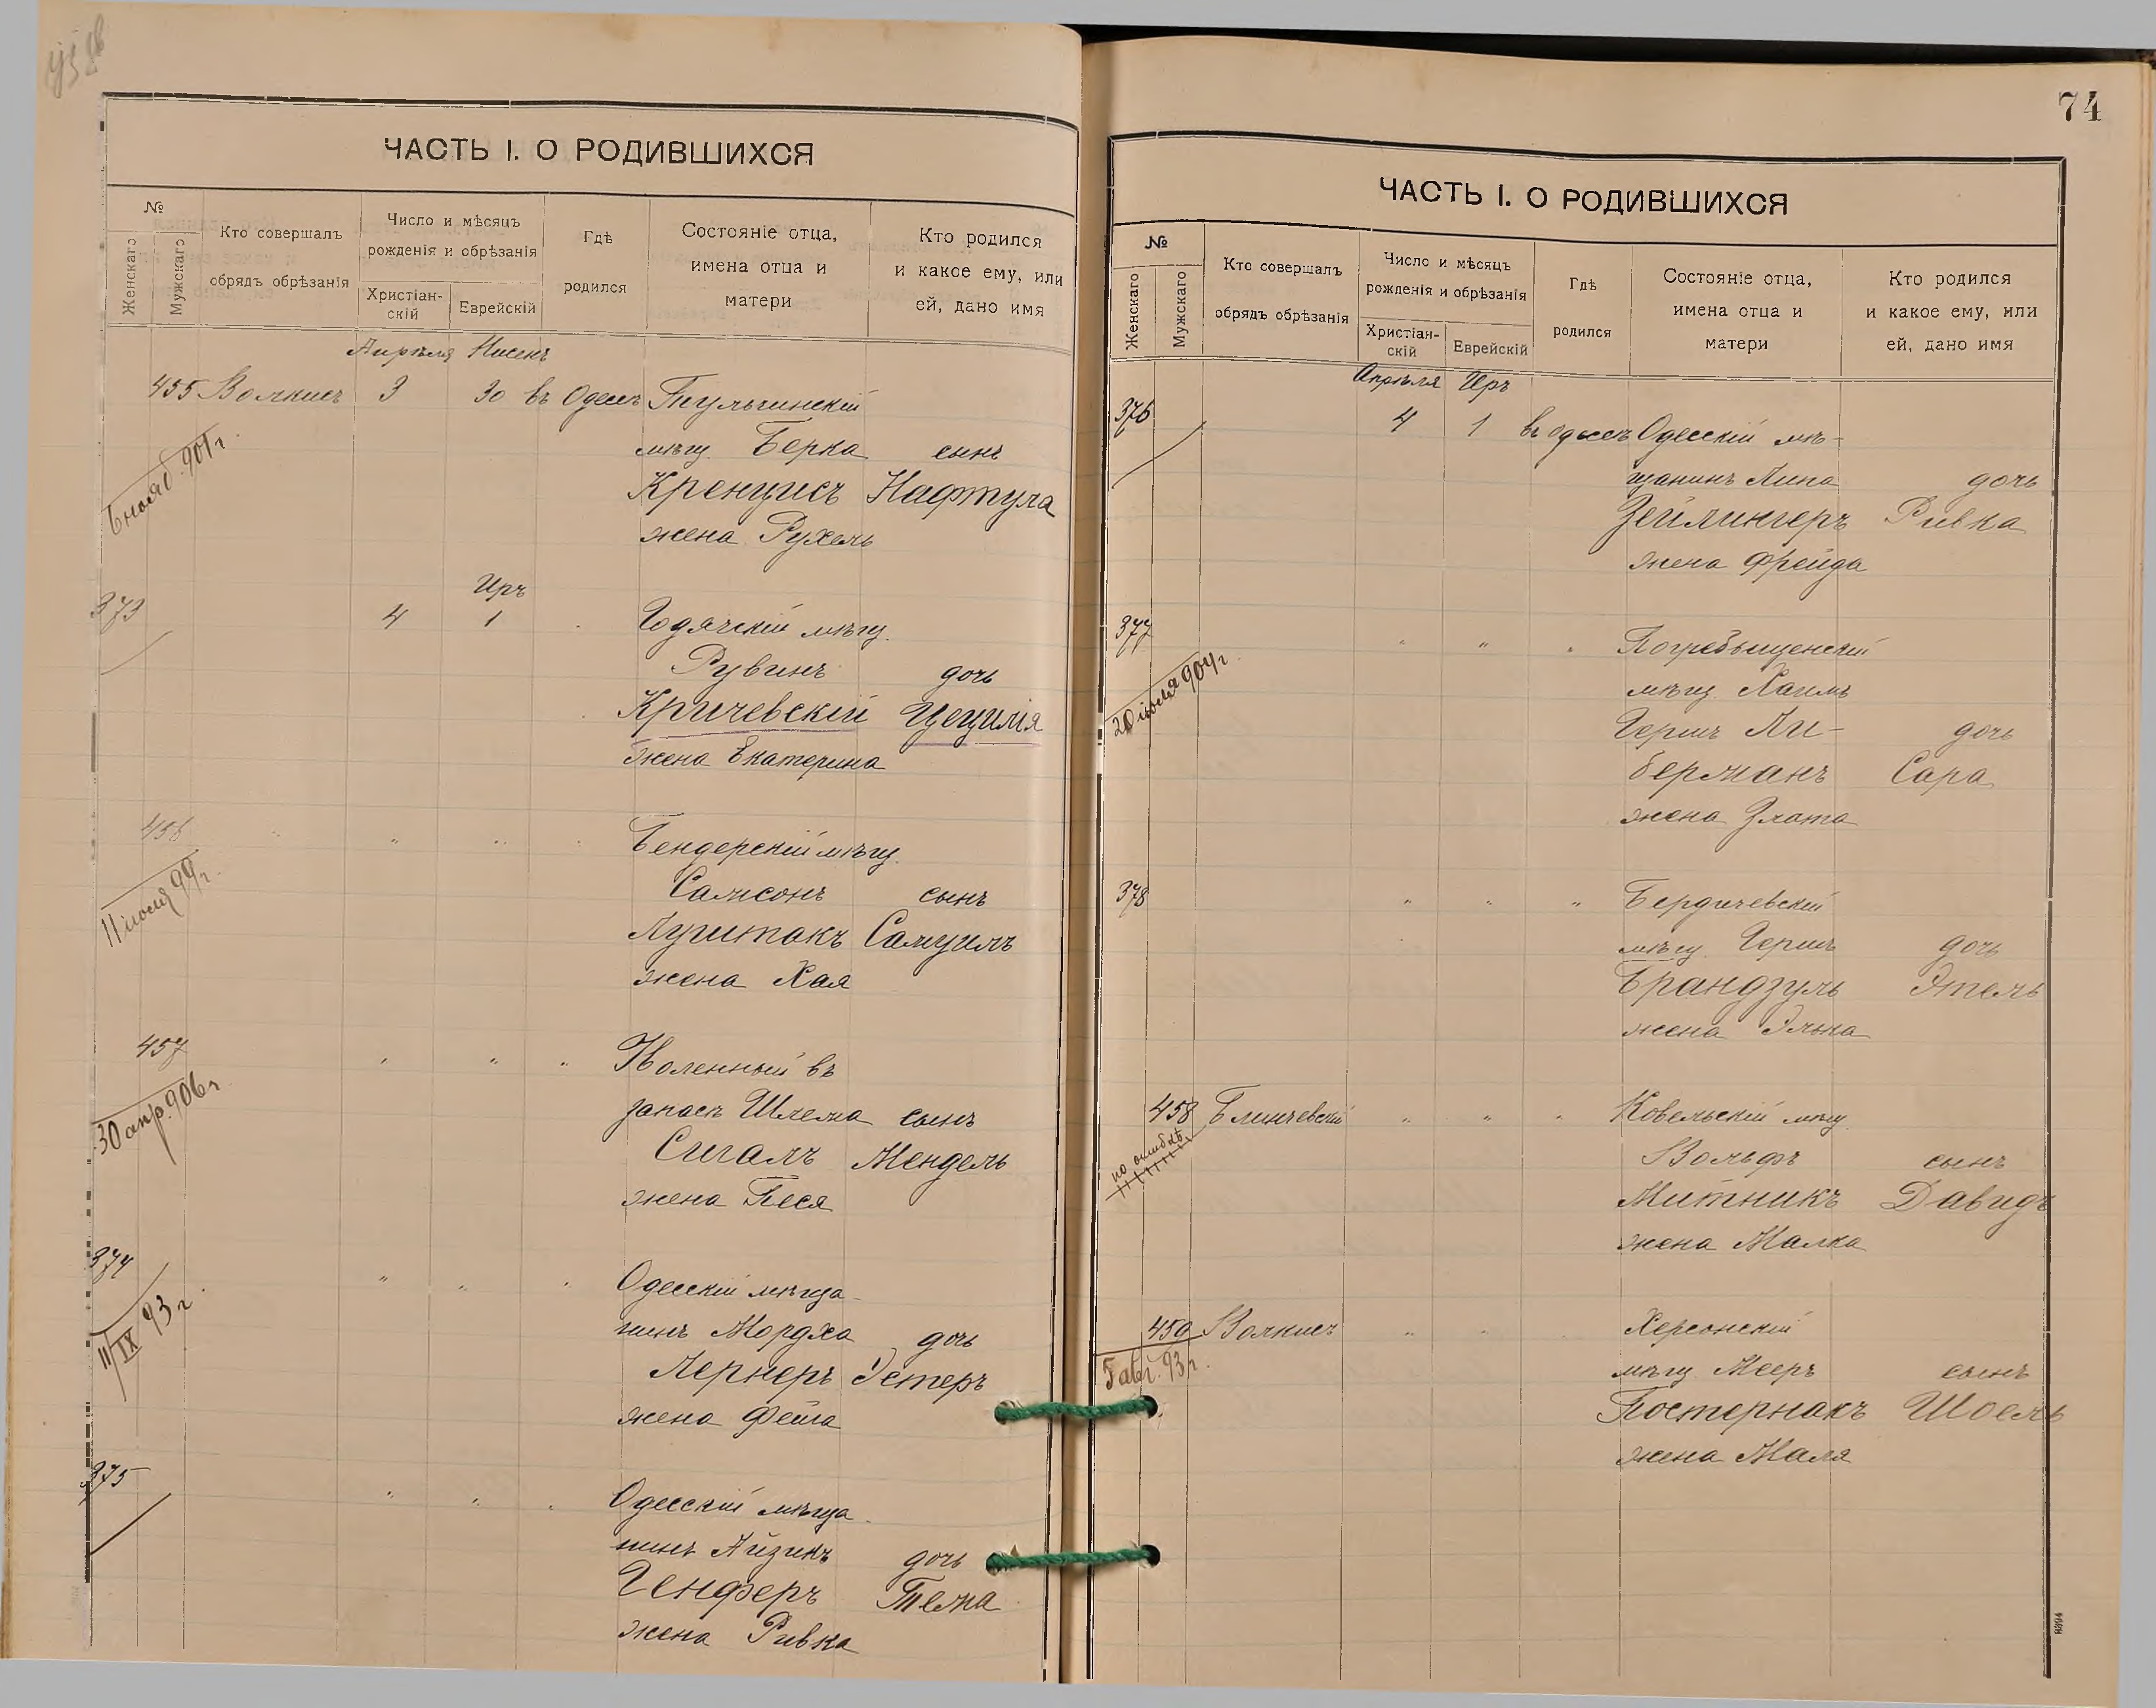 ЧАСТЬ I. О РОДИВШИХСЯ
№
Женскаго
Мужскаго
Кто совершалъ
обрядъ обрѣзанія
Число и мѣсяцъ
рожденія и обрѣзанія
Христіан-
скій
Еврейскій
Гдѣ
родился
Состояніе отца,
имена отца и
матери
Кто родился
и какое ему, или
ей, дано имя
Апрѣля Нисенъ
455 Волкисъ 3 30 въ Одессѣ Тульчинскій
мѣщ. Берка сынъ
6 нояб. 901 г.
Кренцисъ Нафтула
жена Рухель
Иръ
373 4 1 Годячскій мѣщ.
Рувинъ дочь
Кричевскій Цецилія
жена Екатерина
456 " " " Бендерскій мѣщ.
11 іюля 99 г.
Самсонъ сынъ
Лушпакъ Самуилъ
жена Хая
457 " " " Уволенный въ
30 апр. 906 г.
запасъ Шлема сынъ
Сигалъ Мендель
жена Песя
374 " " " Одесскій мѣща-
11/IX 93 г.
нинъ Мордха дочь
Лернеръ Эстеръ
жена Фейга
375 " " " Одесскій мѣща-
нинъ Айзикъ дочь
Генферъ Тема
жена Ривка
74
ЧАСТЬ I. О РОДИВШИХСЯ
№
Женскаго
Мужскаго
Кто совершалъ
обрядъ обрѣзанія
Число и мѣсяцъ
рожденія и обрѣзанія
Христіан-
скій
Еврейскій
Гдѣ
родился
Состояніе отца,
имена отца и
матери
Кто родился
и какое ему, или
ей, дано имя
Апрѣля Иръ
376 4 1 въ Одессѣ Одесскій мѣ-
щанинъ Липа дочь
Зейлингеръ Ривка
жена Фрейда
377 " " " Погребыщенскій
20 іюля 904 г.
мѣщ. Хаимъ
Гершъ Ли- дочь
берманъ Сара
жена Злата
378 " " " Бердичевскій
мѣщ. Гершъ дочь
Брандзуль Этель
жена Элька
458 Блинчевскій " " " Ковельскій мѣщ.
по ошибкѣ
Вольфъ сынъ
Митникъ Давидъ
жена Малка
459 Волкисъ " " Херсонскій
5 авг. 93 г.
мѣщ. Мееръ сынъ
Постернакъ Шоель
жена Маля